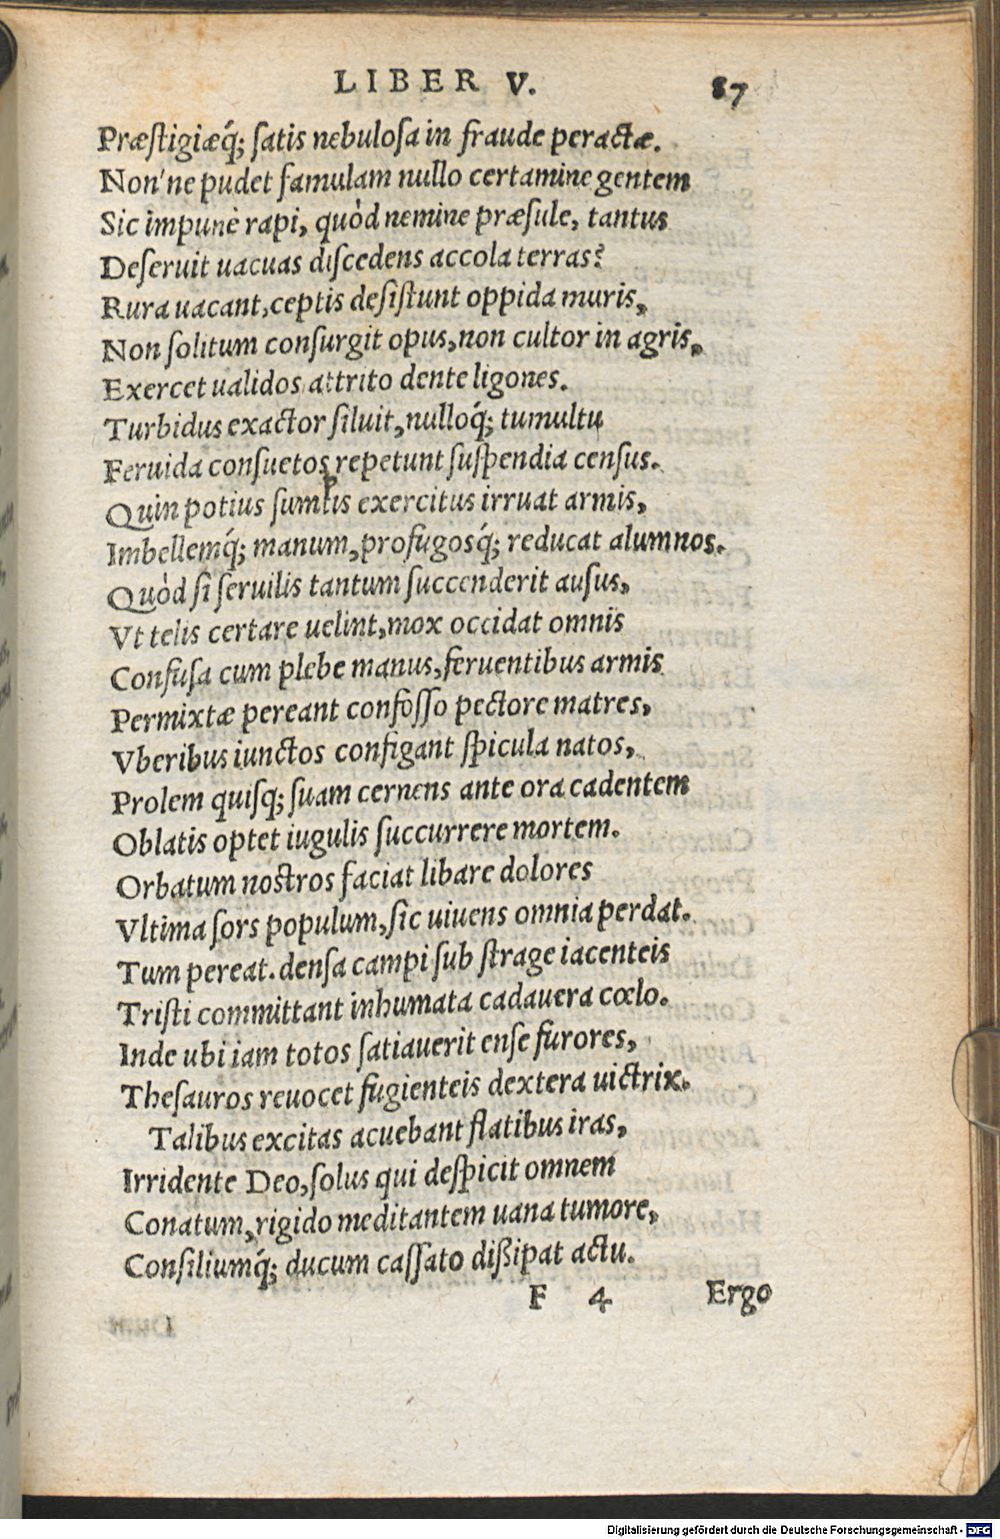 LIBER V. 87
Præſtigiæq́; ſatis nebuloſa in fraude peractæ.
Non'ne pudet famulam nullo certamine gentem
Sic impunè rapi, quòd nemine præſule, tantus
Deſeruit uacuas diſcedens accola terras?
Rura uacant, ceptis deſiſtunt oppida muris,
Non ſolitum conſurgit opus, non cultor in agris,
Exercet ualidos attrito dente ligones.
Turbidus exactor ſiluit, nulloq́; tumultu
Feruida conſuetos repetunt ſuſpendia cenſus.
Quin potius ſumptis exercitus irruat armis,
Imbellemq́; manum, profugosq́; reducat alumnos.
Quòd ſi ſeruilis tantum ſuccenderit auſus,
Vt telis certare uelint, mox occidat omnis
Confuſa cum plebe manus, feruentibus armis
Permixtæ pereant confoſſo pectore matres,
Vberibus iunctos configant ſpicula natos,
Prolem quiſq; ſuam cernens ante ora cadentem
Oblatis optet iugulis ſuccurrere mortem.
Orbatum noſtros faciat libare dolores
Vltima ſors populum, ſic uiuens omnia perdat.
Tum pereat. denſa campi ſub ſtrage iacenteis
Triſti committant inhumata cadauera cœlo.
Inde ubi iam totos ſatiauerit enſe furores,
Theſauros reuocet fugienteis dextera uictrix.
Talibus excitas acuebant flatibus iras,
Irridente Deo, ſolus qui deſpicit omnem
Conatum, rigido meditantem uana tumore,
Conſiliumq́; ducum caſſato diſsipat actu.
F 4 Ergo
Digitalisierung gefördert durch die Deutsche Forschungsgemeinschaft - DFG